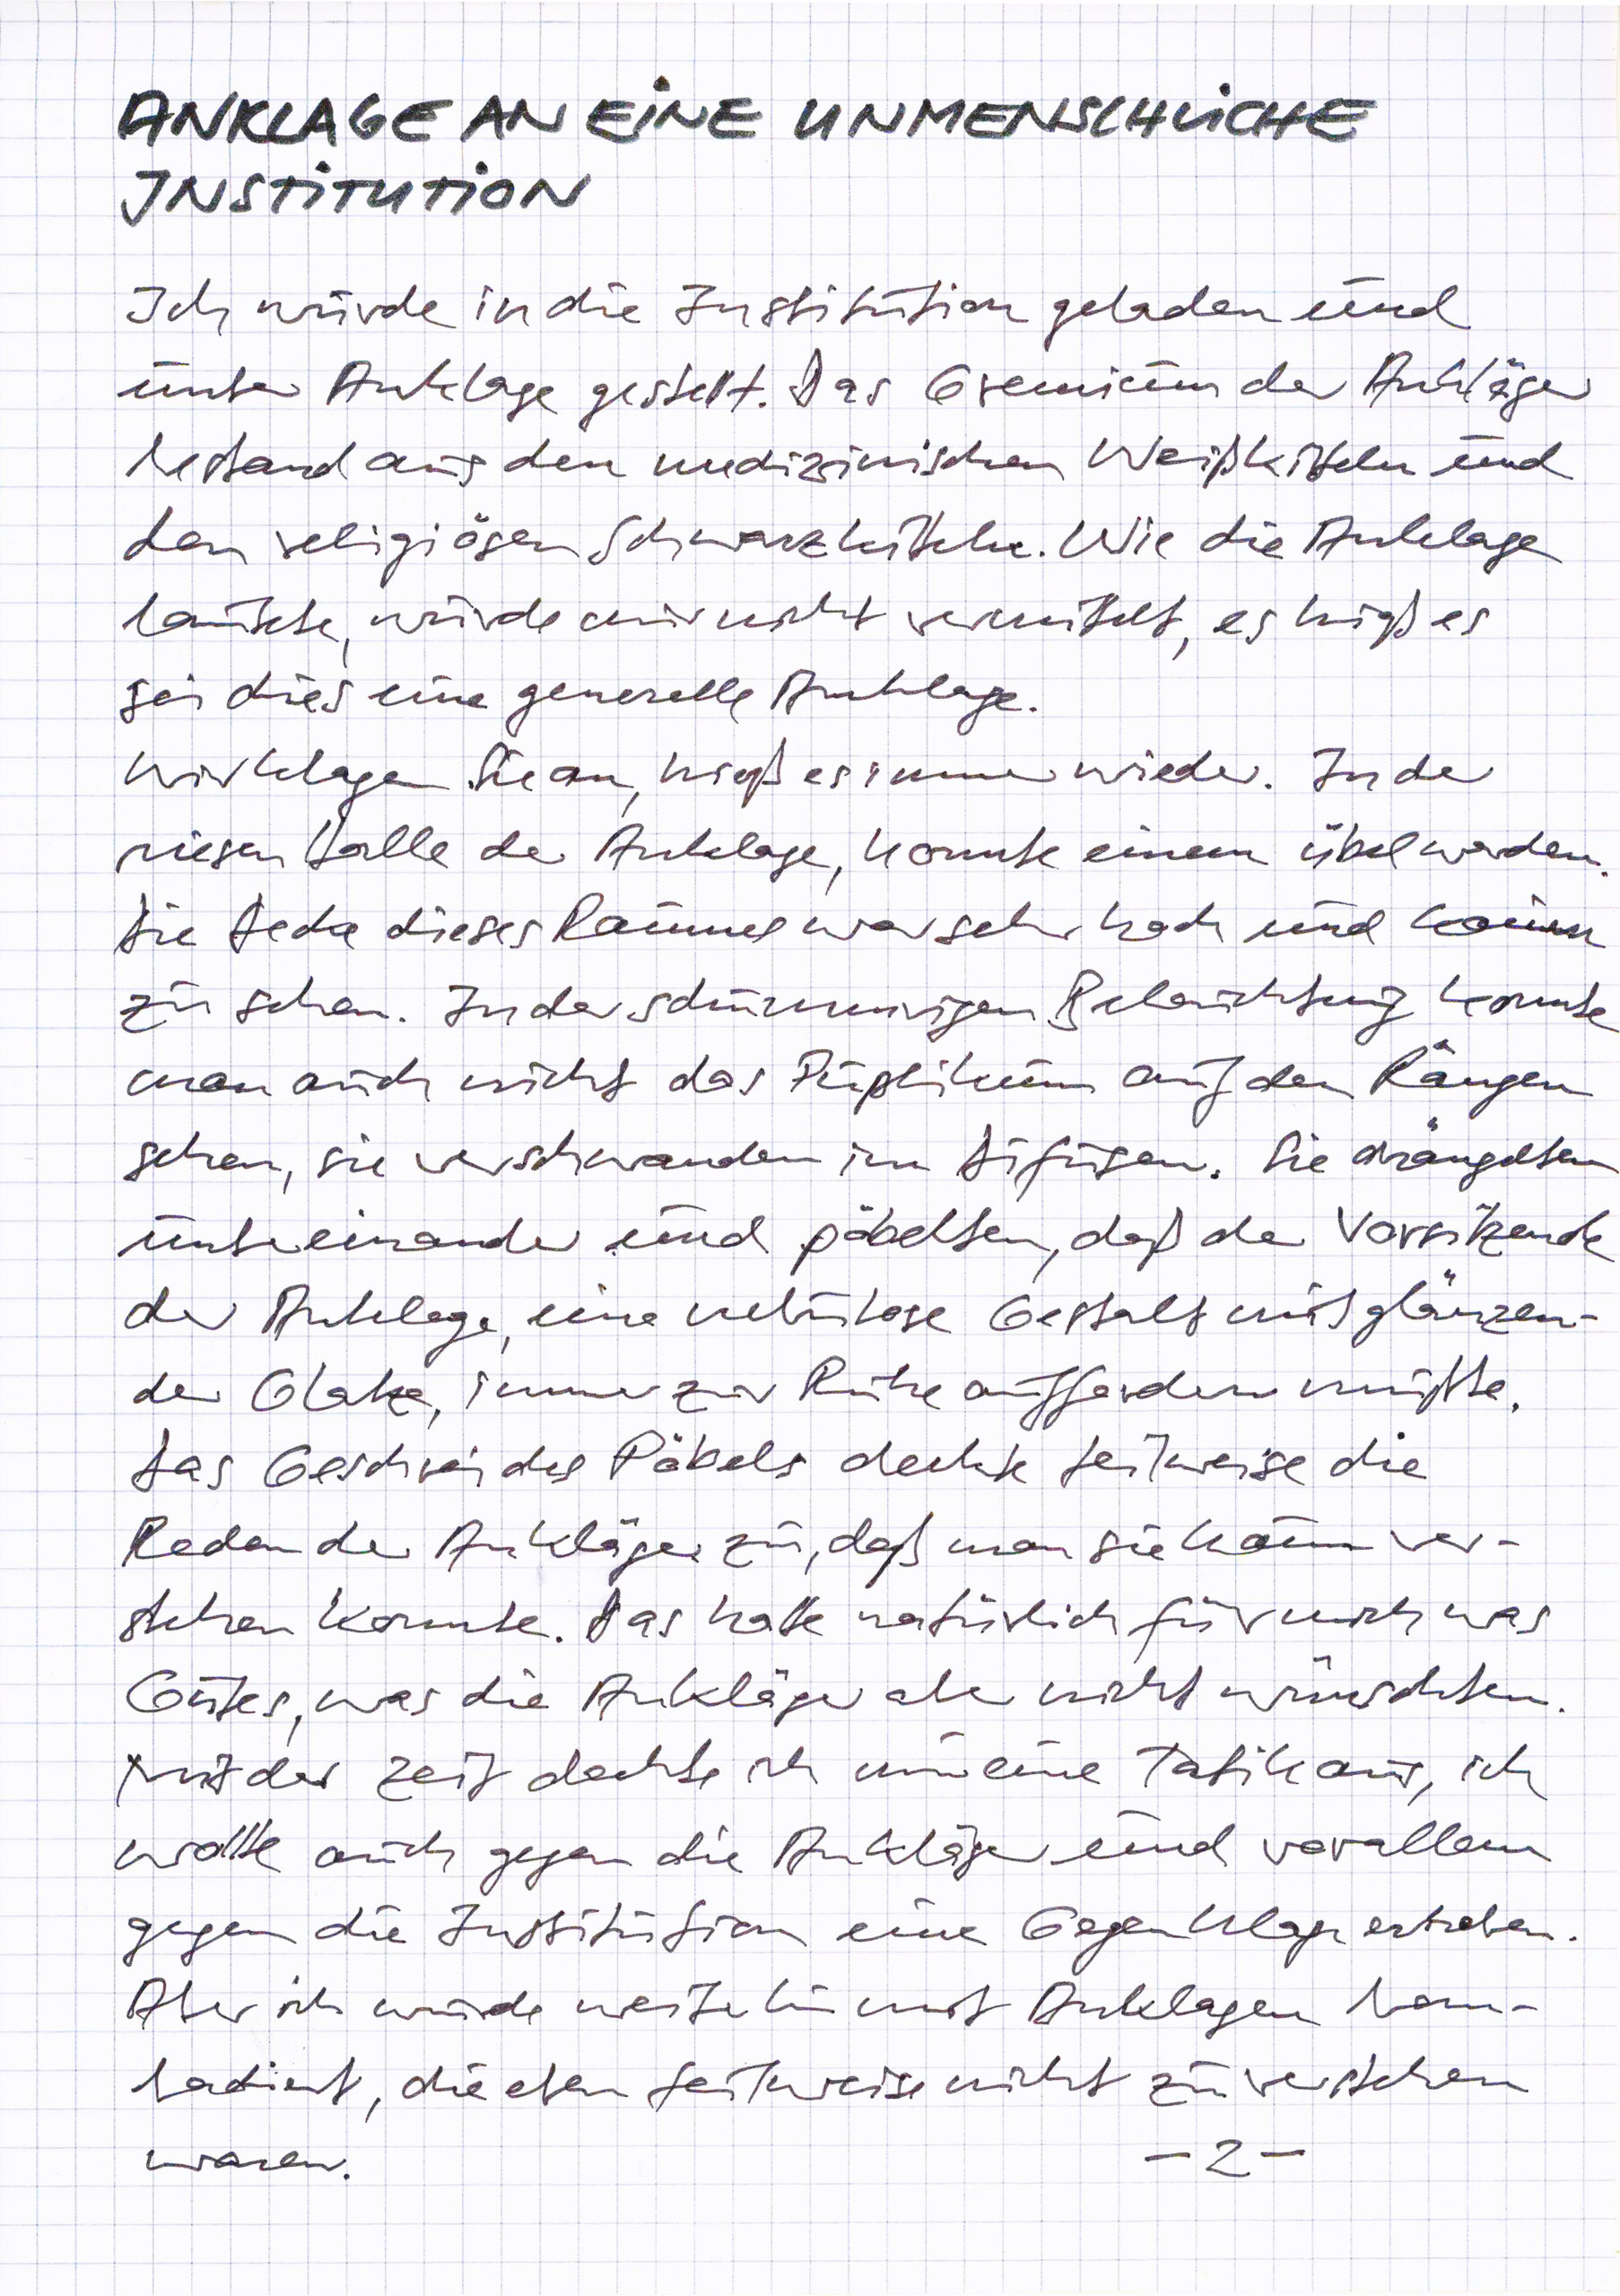 ANKLAGE AN EINE UNMENSCHLICHE
INSTITUTION
Ich wurde in die Institution geladen und
unter Anklage gestellt. Das Gremium der Ankläger
bestand aus den medizinischen Weißkitteln und
den religiösen Schwarzkitteln. Wie die Anklage
lautete, wurde mir nicht vermittelt, es hieß es
sei dies eine generelle Anklage.
Wir klagen Sie an, hieß es immer wieder. In der
riesen Halle der Anklage, konnte einem übel werden.
Die Decke dieses Raumes war sehr hoch und kaum
zu sehen. In der schummrigen Beleuchtung konnte
man auch nicht das Puplikum auf den Rängen
sehen, sie verschwanden im Difusen. Sie drängelten
untereinander und pöbelten, daß der Vorsitzende
der Anklage, eine nebulose Gestalt mit glänzen-
der Glatze, immer zur Ruhe auffordern mußte.
Das Geschrei des Pöbels deckte teilweise die
Reden der Ankläger zu, daß man sie kaum ver-
stehen konnte. Das hatte natürlich für mich was
Gutes, was die Ankläger aber nicht wünschten.
Mit der Zeit dachte ich mir eine Taktik aus, ich
wollte auch gegen die Ankläger und vorallem
gegen die Institution eine Gegenklage erheben.
Aber ich wurde weiterhin mit Anklagen bom-
badiert, die eben teilweise nicht zu verstehen
waren. -2-